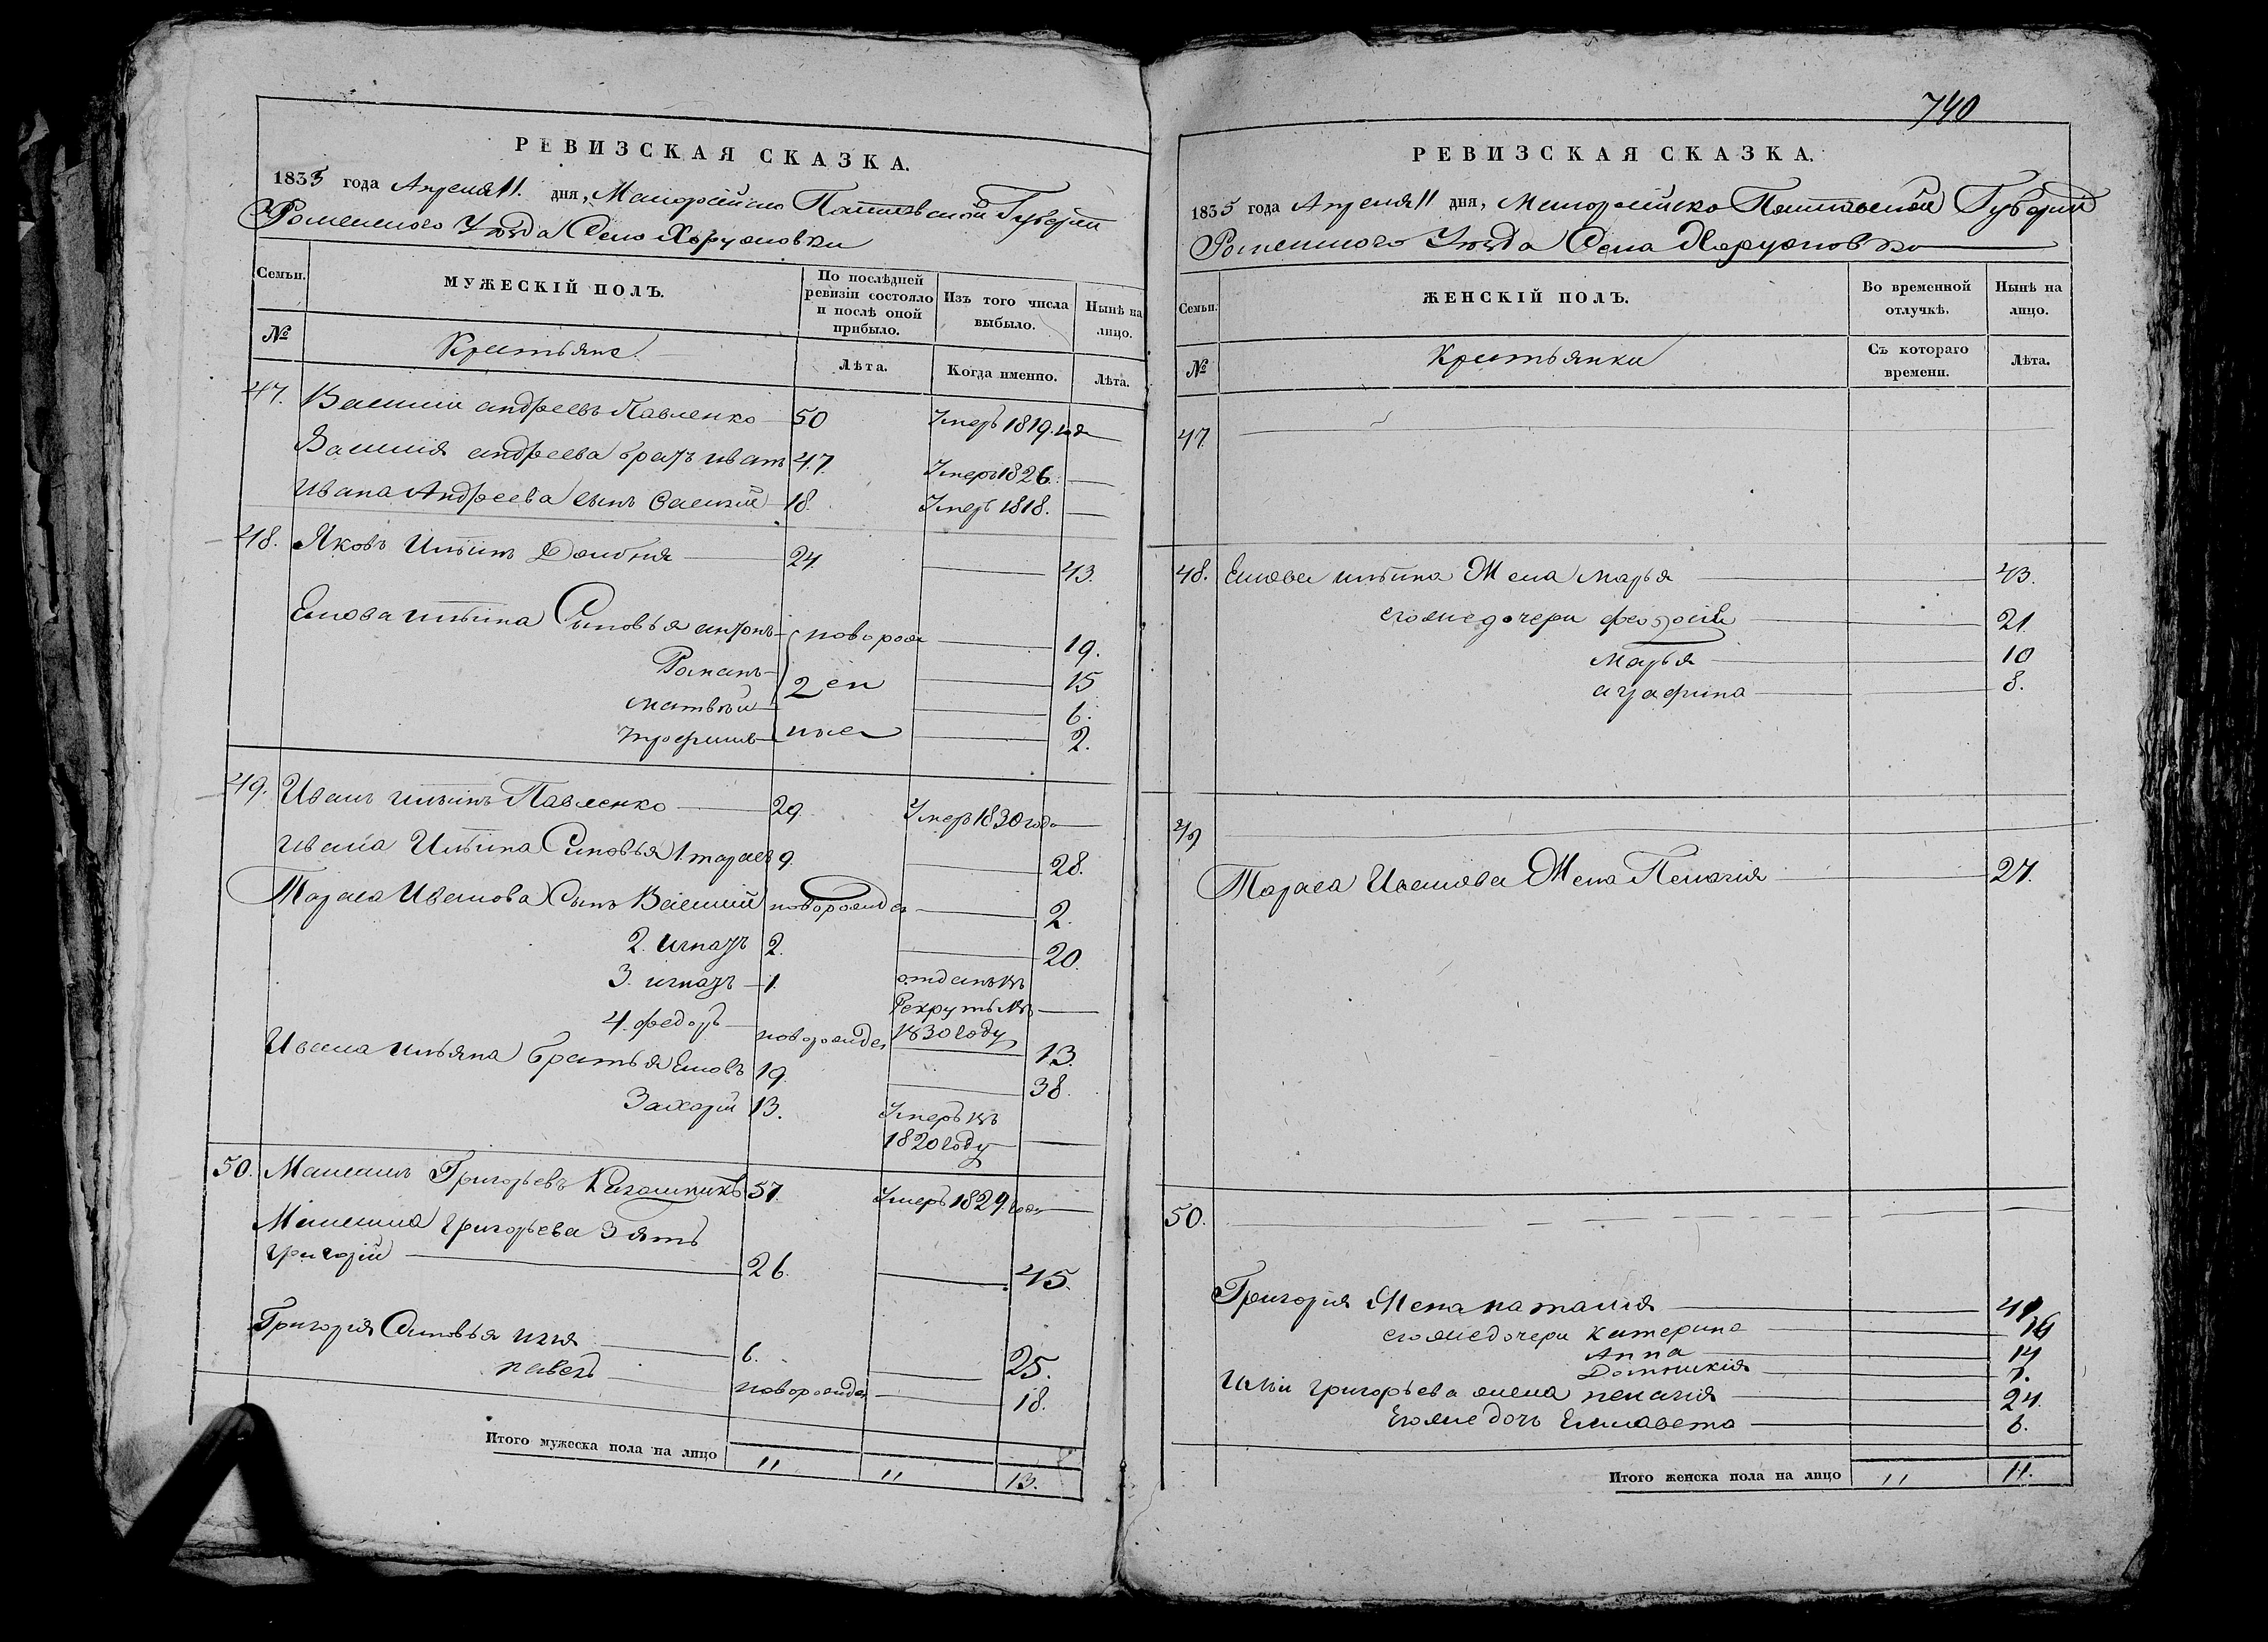 РЕВИЗСКАЯ СКАЗКА.
1835 года Апреля 11. дня, Малороссійско Полтавской Губерніи
Роменского Уезда Села Хоружовки
Семьи.
МУЖЕСКІЙ ПОЛЪ.
По послѣдней ревизіи состояло и послѣ оной прибыло.
Изъ того числа выбыло.
Нынѣ на лицо.
№
Крестьяне.
Лѣта.
Когда именно.
Лѣта.
47. Василій андреевъ Павленко 50 Умеръ 1819. года
Василія андреева братъ иванъ 47. Умеръ 1826.
Ивана Андреева сынъ василій 18. Умеръ 1818.
48. Яковъ Ильинъ 24 43.
Якова ильина Сыновья антонъ новорож 19.
Романъ 15
матвѣй 2 ен 6.
трофимъ ные 2.
49. Иванъ ильинъ Павленко 29. Умеръ 1830 года
ивана Ильина Сыновья 1 тарасъ 9. 28.
Тараса Иванова Сынъ Василий новорожде 2.
2. игнатъ 2. 20.
3. игнатъ 1. отданъ въ
Рекруты въ
4. федотъ новорожде 1830 году 13.
Ивана ильина братья Яковъ 19. 38.
Захарій 13. Умеръ въ
1820 году
50. Григорьевъ 57. Умеръ 1829. года
григорьева Зять
григорій 26. 45.
Григорія Сыновья илья 6. 25.
павелъ новорожде 18.
Итого мужеска пола на лицо 11 11 13.
740
РЕВИЗСКАЯ СКАЗКА.
1835 года Апреля 11 дня, Малороссійско Полтавской Губерніи
Роменского Уезда Села Хоружовки
Семьи.
ЖЕНСКІЙ ПОЛЪ.
Во временной отлучкѣ.
Нынѣ на лицо.
№
Крестьянки
Съ котораго времени.
Лѣта.
47.
48. Якова ильина Жена марья 43.
егожедочери феодосія 21
марья 10
агафина 8.
49
Тараса Иванова Жена Пелагія 27.
50.
Григорія Жена наталія
егожедочери катерина 16
Анна 14
Домникія 7.
Ильи григорьева жена пелагія 24.
Егоже дочь Елисавета 6.
Итого женска пола на лицо 11 11.